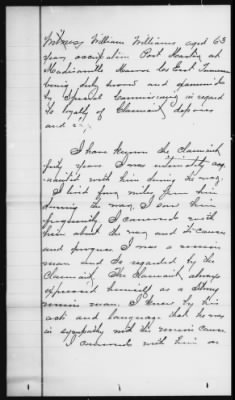 Witness William Williams, aged 63
years occupation Post Master at
Madisonville Monroe Co East Tennessee
being duly sword and examined
by Special Commissioner in regard
to loyalty of Claimant, deposes
and says
I have known the claimant
fifty years I was intimately acq-
uainted with him during the war,
I lived four miles from him
during the war, I saw him
frequently, I conversed with
him about the war and its causes
and progress I was a union
man and so regarded by the
Claimant, The Claimant always
expressed himself as a strong
union man. I know by his
acts and language that he was
in sympathy with the union cause
I conversed with him on